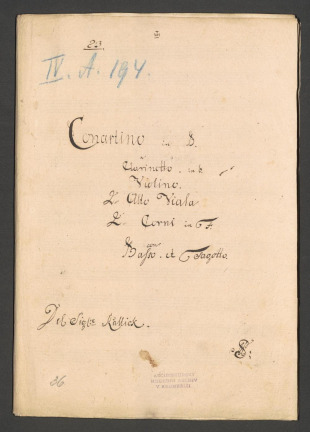 23
IV. A. 194.
Conartino in B.
Clarinetto in B
Violino.
2 Alto Viola
2. Corni in F
Basso et Fagotto.
Del Sigre
36